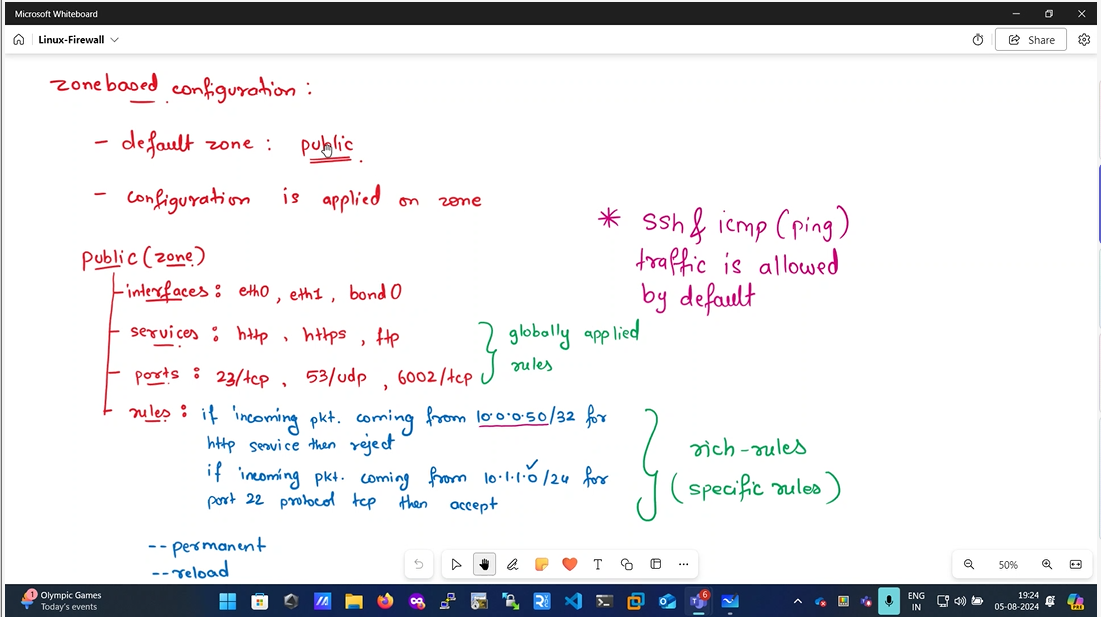 Microsoft Whiteboard
Linux-Firewall
Share
zone based configuration :
- default zone : public
- configuration is applied on zone
* ssh & icmp (ping)
traffic is allowed
by default
public (zone)
interfaces : eth0, eth1, bond0
services : http, https, ftp
ports : 23/tcp, 53/udp, 6002/tcp
globally applied
rules
rules : if incoming pkt. coming from 10.0.0.50/32 for
http service then reject
if incoming pkt. coming from 10.1.1.0/24 for
port 22 protocol tcp then accept
rich-rules
(specific rules)
--permanent
--reload
T
50%
1
Olympic Games
Today's events
6
ENG
IN
19:24
05-08-2024